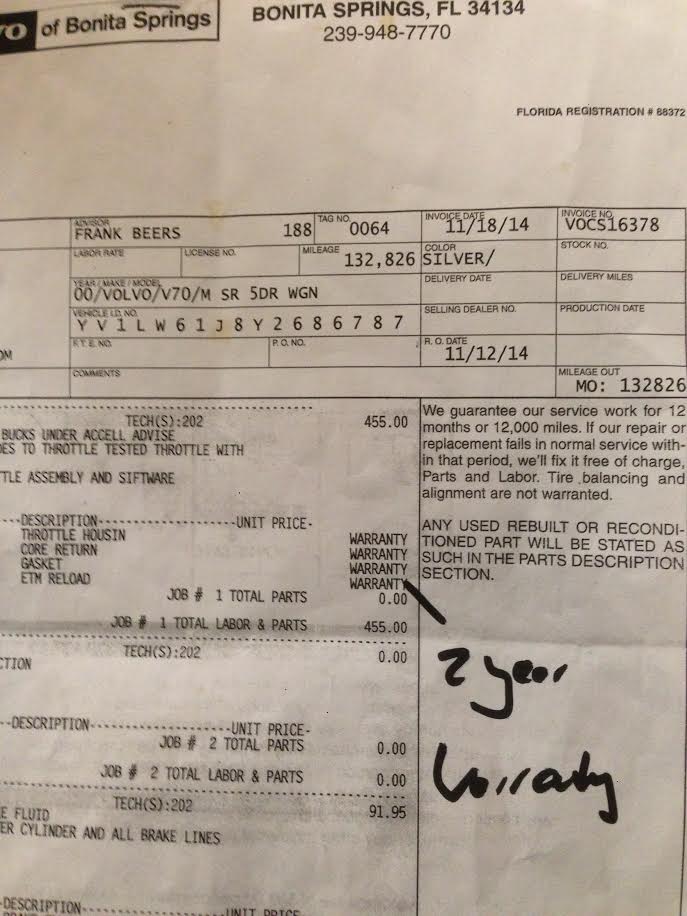 VO of Bonita Springs
BONITA SPRINGS, FL 34134
239-948-7770
FLORIDA REGISTRATION # 88372
ADVISOR
FRANK BEERS 188
TAG NO.
0064
INVOICE DATE
11/18/14
INVOICE NO.
VOCS16378
LABOR RATE
LICENSE NO.
MILEAGE
132,826
COLOR
SILVER/
STOCK NO.
YEAR / MAKE / MODEL
00/VOLVO/V70/M SR 5DR WGN
DELIVERY DATE
DELIVERY MILES
VEHICLE I.D. NO.
YV1LW61J8Y2686787
SELLING DEALER NO.
PRODUCTION DATE
F.T.E. NO.
P.O. NO.
R.O. DATE
11/12/14
OM
COMMENTS
MILEAGE OUT
MO: 132826
TECH(S):202 455.00
BUCKS UNDER ACCELL ADVISE
DES TO THROTTLE TESTED THROTTLE WITH
TLE ASSEMBLY AND SIFTWARE
---DESCRIPTION-----------------UNIT PRICE-
THROTTLE HOUSIN WARRANTY
CORE RETURN WARRANTY
GASKET WARRANTY
ETM RELOAD WARRANTY
JOB # 1 TOTAL PARTS 0.00
JOB # 1 TOTAL LABOR & PARTS 455.00
TECH(S):202 0.00
CTION
---DESCRIPTION-----------------UNIT PRICE-
JOB # 2 TOTAL PARTS 0.00
JOB # 2 TOTAL LABOR & PARTS 0.00
TECH(S):202 91.95
E FLUID
ER CYLINDER AND ALL BRAKE LINES
-DESCRIPTION-----------------UNIT PRICE-
We guarantee our service work for 12
months or 12,000 miles. If our repair or
replacement fails in normal service with-
in that period, we'll fix it free of charge,
Parts and Labor. Tire balancing and
alignment are not warranted.
ANY USED REBUILT OR RECONDI-
TIONED PART WILL BE STATED AS
SUCH IN THE PARTS DESCRIPTION
SECTION.
2 year
Warranty